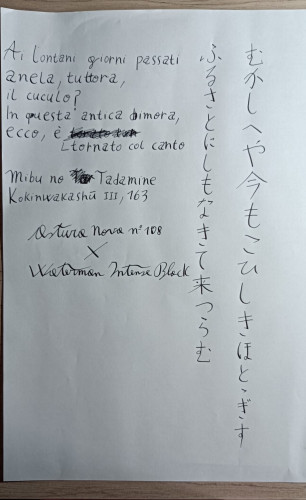 Ai lontani giorni passati
anela, tuttora,
il cuculo?
In questa antica dimora,
ecco, é
tornato col canto
Mibu no Tadamine
Kokinwakashū III, 163
Astura Nova nº 108
X
Waterman Intense Black
むかしへや今もこひしきほとゝぎす
ふるさとにしもなきて来つらむ